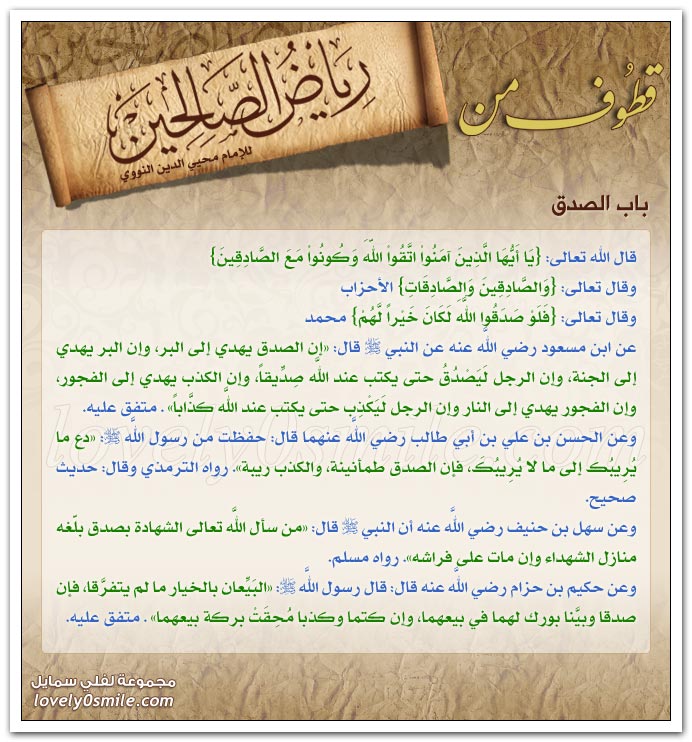 قطوف من
رياض الصالحين
للإمام محيي الدين النووي
باب الصدق
قال الله تعالى: {يَا أَيُّهَا الَّذِينَ آمَنُواْ اتَّقُواْ اللَّهَ وَكُونُواْ مَعَ الصَّادِقِينَ}
وقال تعالى: {وَالصَّادِقِينَ وَالصَّادِقَاتِ} الأحزاب
وقال تعالى: {فَلَوْ صَدَقُوا اللَّه لَكَانَ خَيْراً لَّهُمْ} محمد
عن ابن مسعود رضي اللَّه عنه عن النبي ﷺ قال: «إن الصدق يهدي إلى البر، وإن البر يهدي
إلى الجنة، وإن الرجل لَيَصْدُقُ حتى يكتب عند اللَّه صِدِّيقاً، وإن الكذب يهدي إلى الفجور،
وإن الفجور يهدي إلى النار وإن الرجل لَيَكْذِب حتى يكتب عند اللَّه كذَّاباً» . متفق عليه.
وعن الحسن بن علي بن أبي طالب رضي اللَّه عنهما قال: حفظت من رسول اللَّه ﷺ: «دع ما
يُرِيبُك إلى ما لا يُرِيبُكَ، فإن الصدق طمأنينة، والكذب ريبة». رواه الترمذي وقال: حديث
صحيح.
وعن سهل بن حنيف رضي اللَّه عنه أن النبي ﷺ قال: «من سأل اللَّه تعالى الشهادة بصدق بلّغه
منازل الشهداء وإن مات على فراشه». رواه مسلم.
وعن حكيم بن حزام رضي اللَّه عنه قال: قال رسول اللَّه ﷺ: «البَيِّعان بالخيار ما لم يتفرَّقا، فإن
صدقا وبيَّنا بورك لهما في بيعهما، وإن كتما وكذبا مُحِقَتْ بركة بيعهما» . متفق عليه.
lovely0smile.com
مجموعة لفلي سمايل
lovely0smile.com